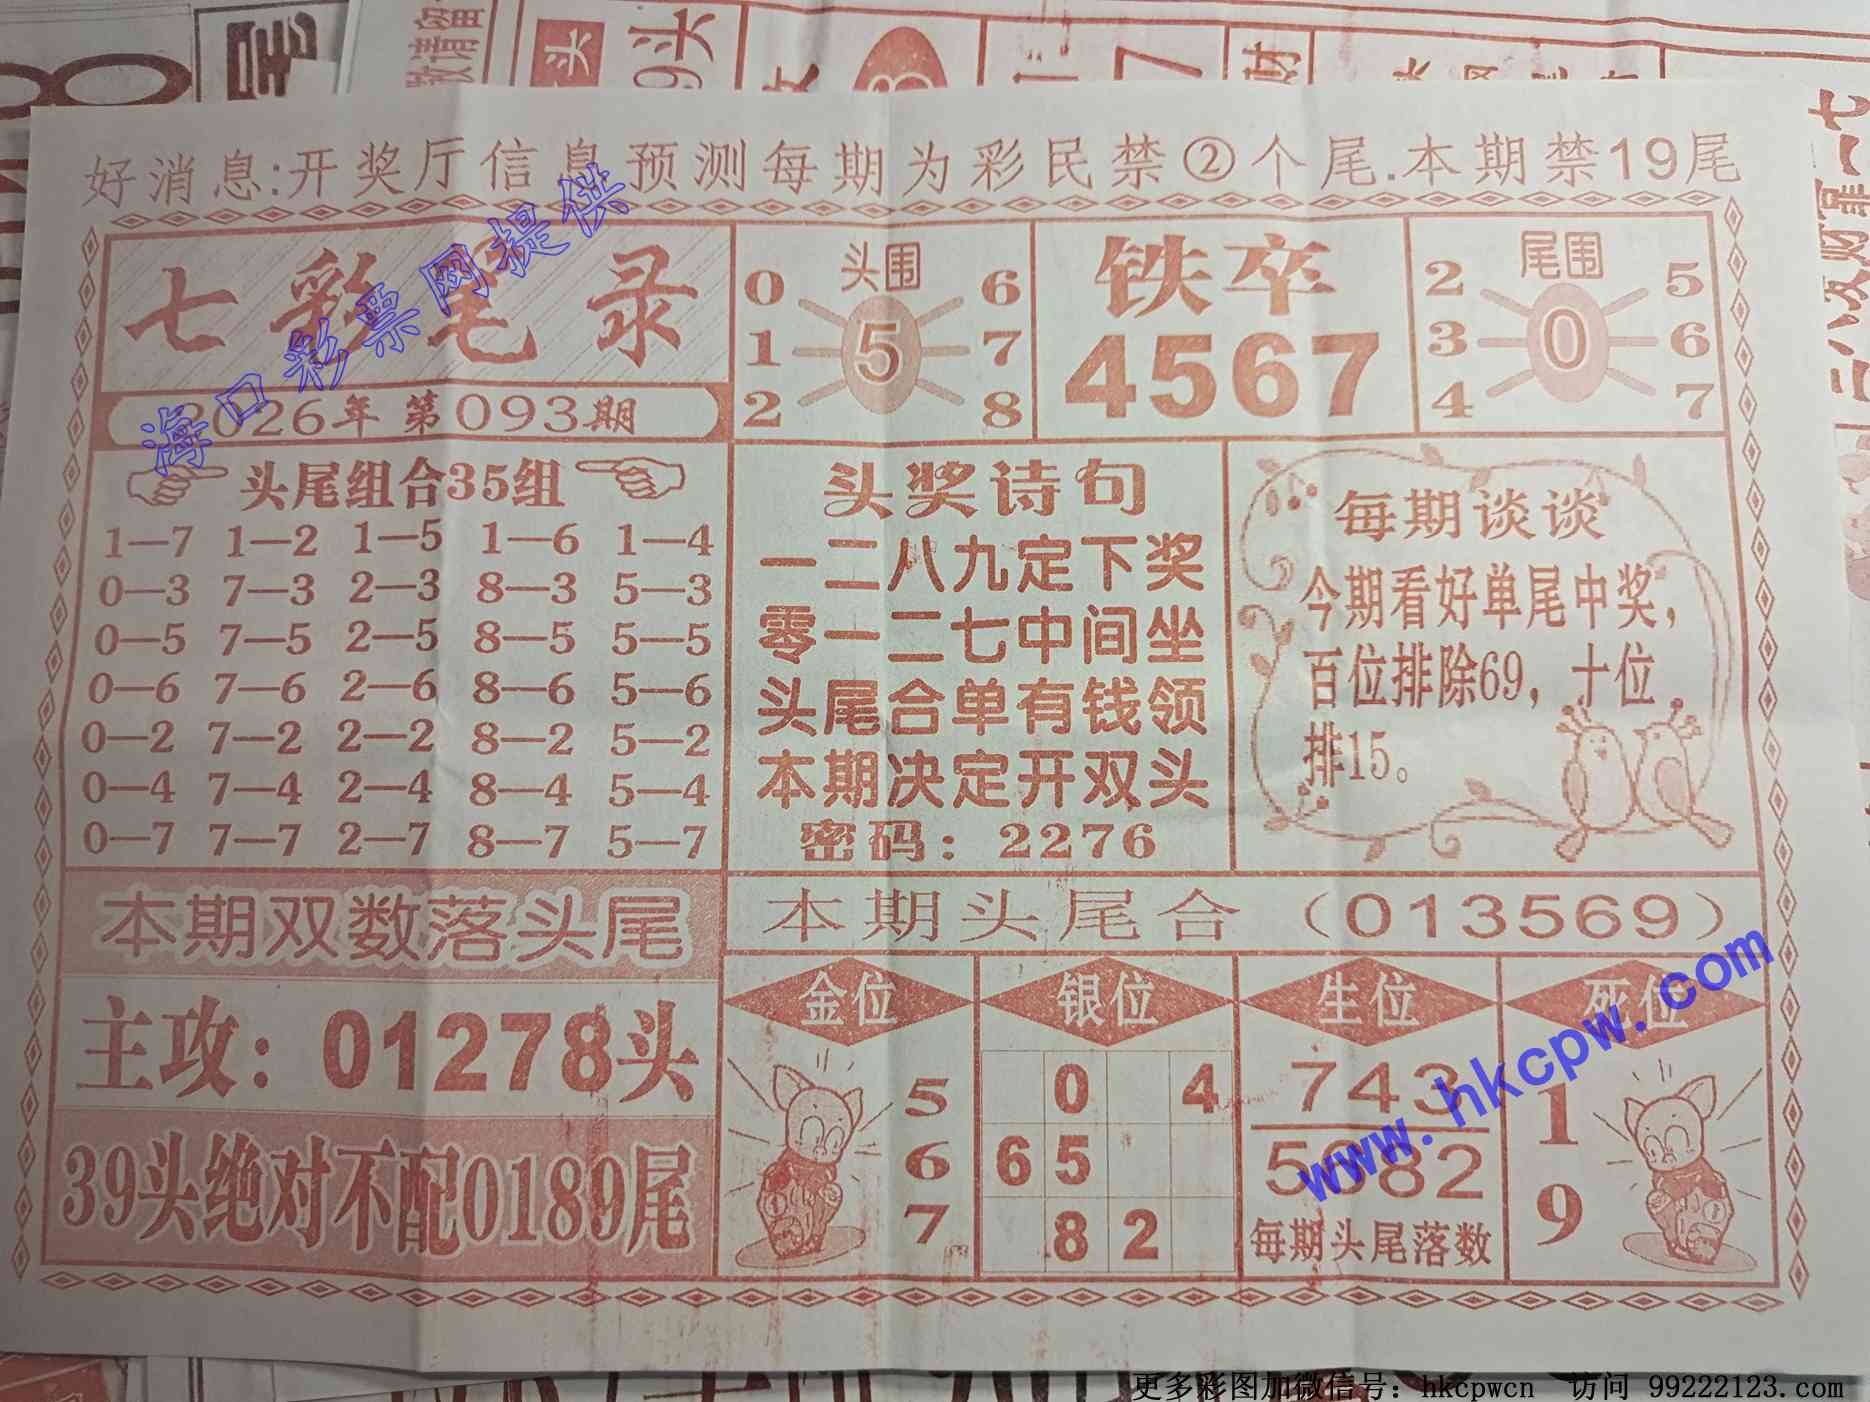 好消息:开奖厅信息预测每期为彩民禁②个尾.本期禁19尾
七彩笔录
2026年 第093期
头围
0 6
1 5 7
2 8
铁卒
4567
尾围
2 5
3 0 6
4 7
头尾组合35组
1—7 1—2 1—5 1—6 1—4
0—3 7—3 2—3 8—3 5—3
0—5 7—5 2—5 8—5 5—5
0—6 7—6 2—6 8—6 5—6
0—2 7—2 2—2 8—2 5—2
0—4 7—4 2—4 8—4 5—4
0—7 7—7 2—7 8—7 5—7
头奖诗句
一二八九定下奖
零一二七中间坐
头尾合单有钱领
本期决定开双头
密码：2276
每期谈谈
今期看好单尾中奖，
百位排除69，十位
排15。
本期双数落头尾
主攻：01278头
39头绝对不配0189尾
本期头尾合（013569）
金位
5
6
7
银位
0 4
6 5
8 2
生位
743
5682
每期头尾落数
死位
1
9
海口彩票网提供
www.hkcpw.com
更多彩图加微信号：hkcpwcn 访问 99222123.com